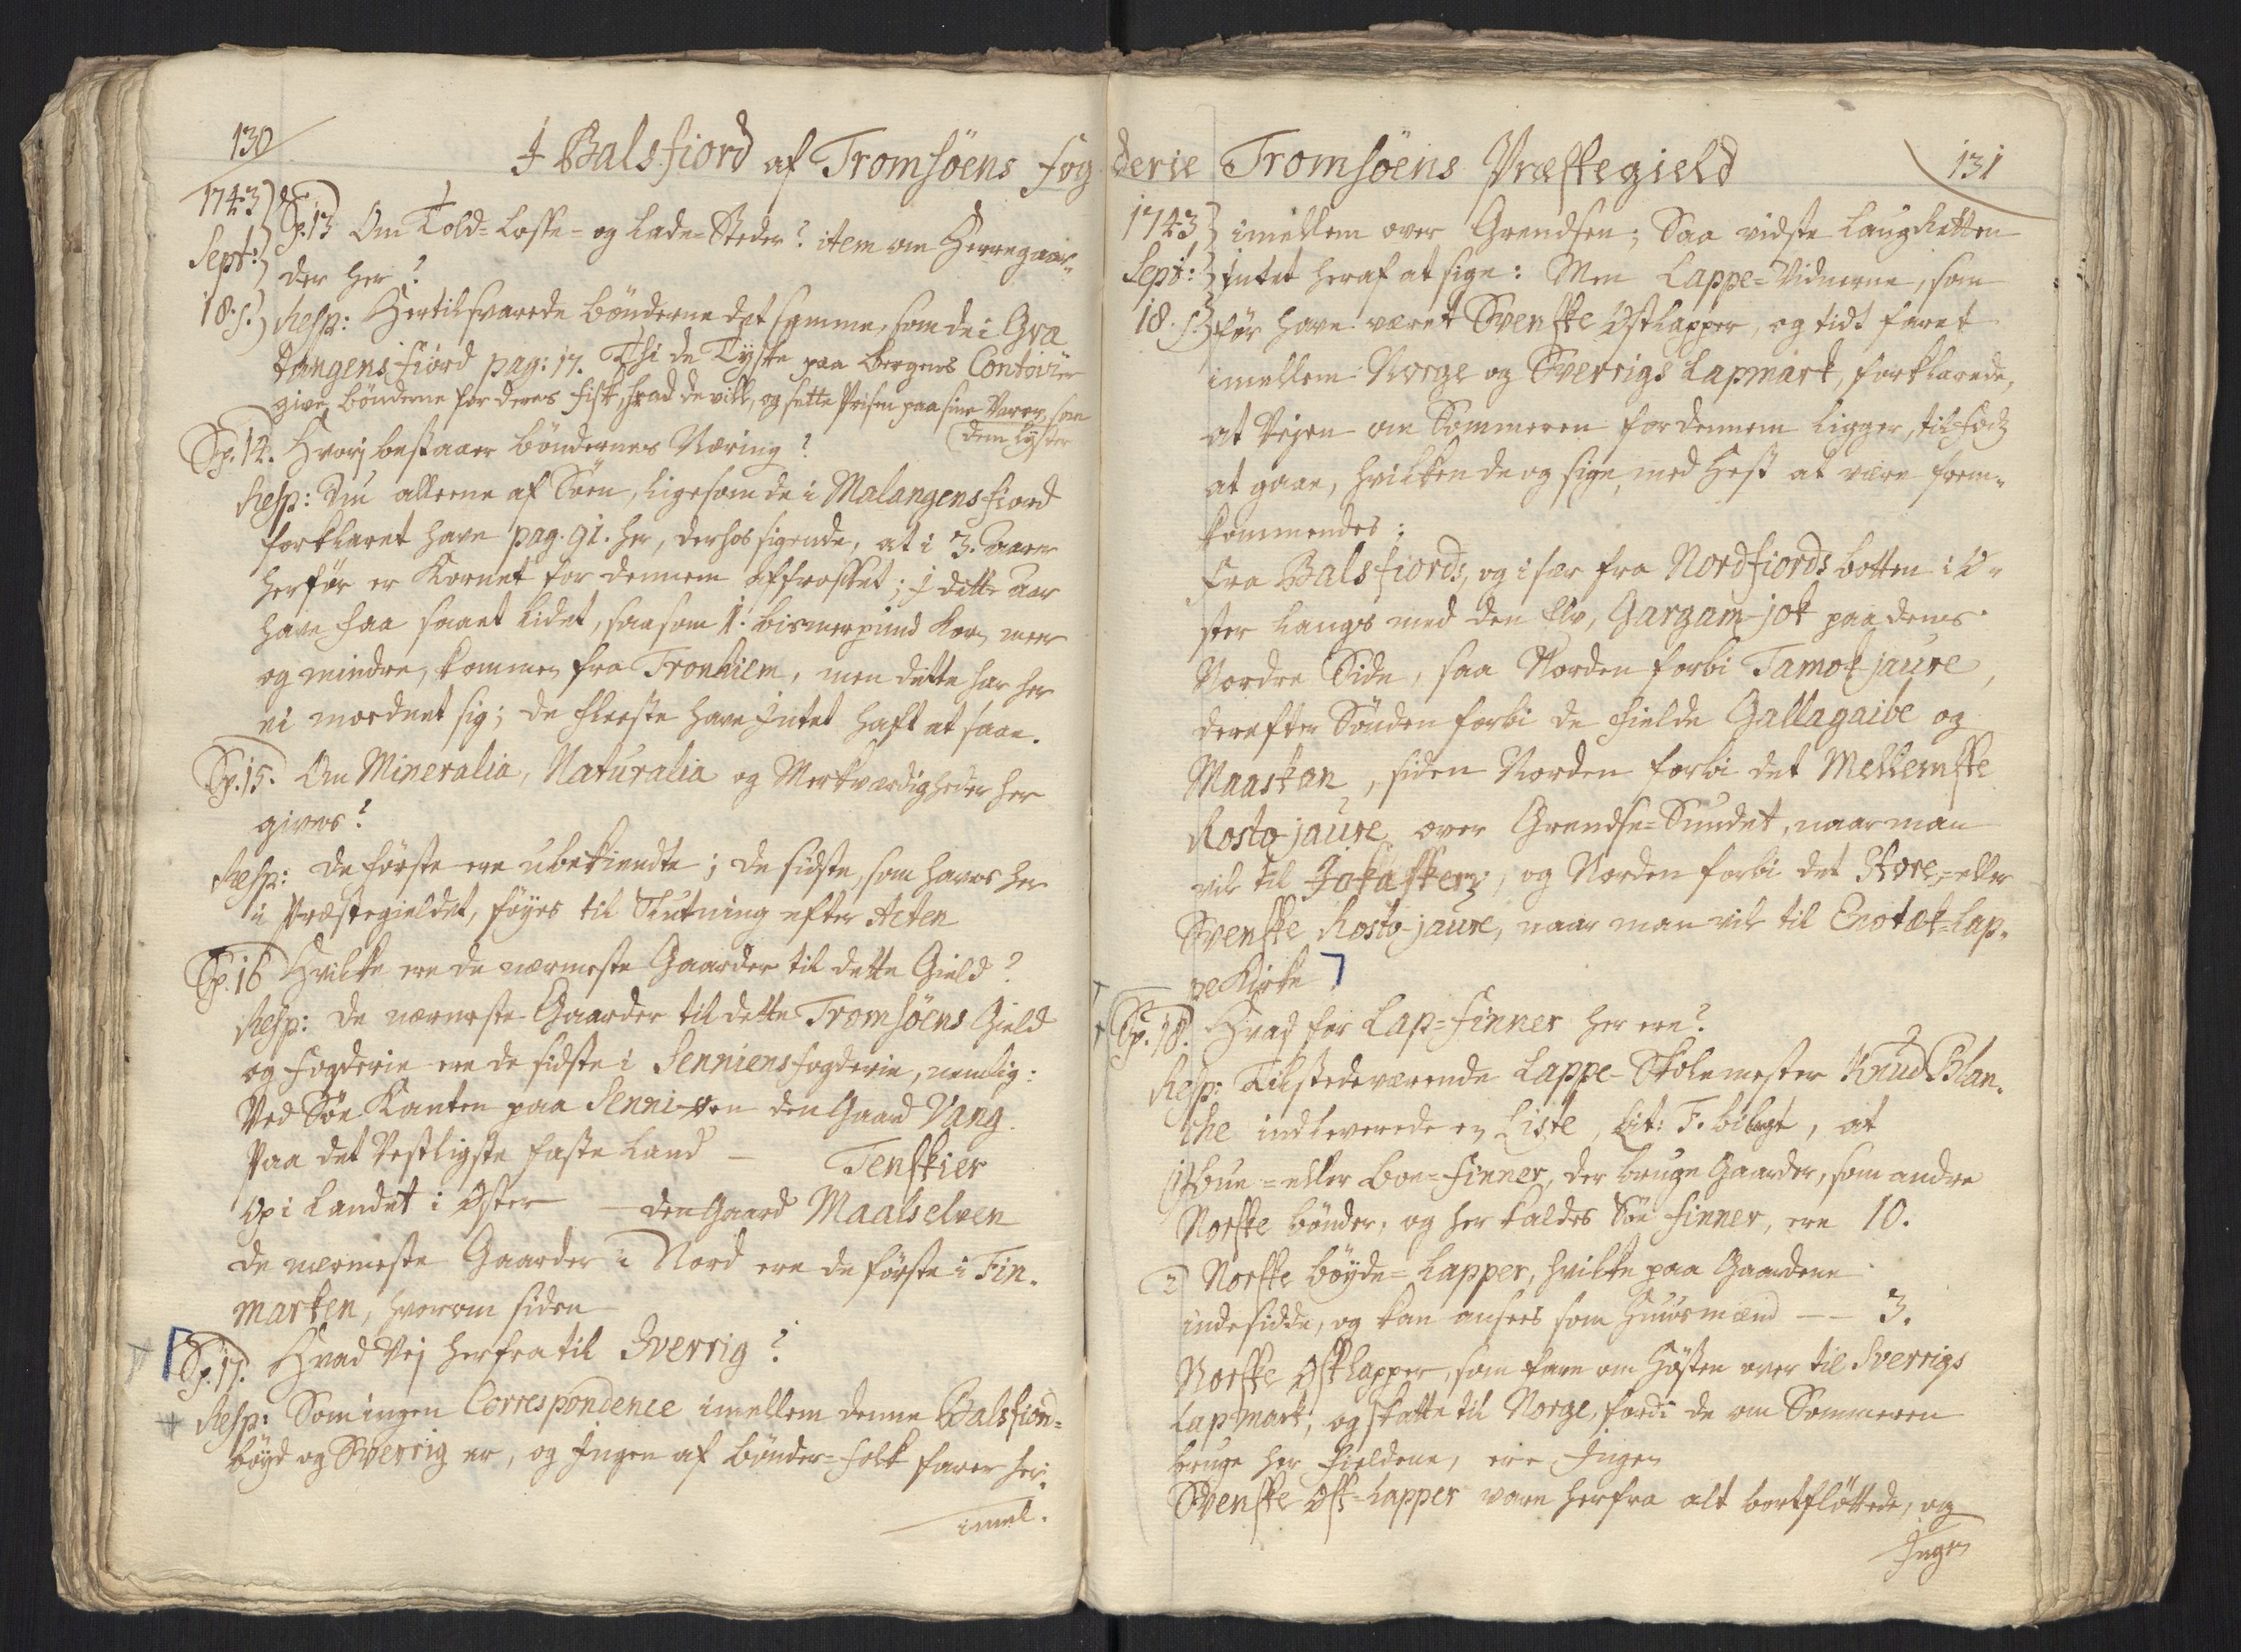 130
I Balsfiord af Tromsöens fog
1743
Sept:
18. s:
Sp. 13 Om Told- Losse- og Lade-Steder? item om Herregaar-
der her?
Resp: Hertil svarede bönderne det samme, som de i Gra
tangens fiord pag: 17. Thi de Tyske paa Bergens Contoir
give bönderne for deres fisk, hvad de vill, og sette Prisen paa sine Varer, som
dem lyster
Sp. 14. Hvorj bestaaer böndernes Næring?
Resp: Du alleene af Söen, ligesom de i Malangens fiord
forklaret have pag. 91. her, derhos sigende, at i 3. Aar
herför er Kornet for dennem affrosset; i dette Aar
have faa saaet lidet, saasom 1. bismerpund Korn, meer
og mindre, kommen fra Tronhiem, men dette har her
ei moednet sig; de fleeste have Intet haft at saae.
Sp. 15. Om Mineralia, Naturalia og Merkværdigheder her
gives?
Resp: de förste ere ubekiendte; de sidste, som haves her
i Præstegieldet, föyes til Slutning efter Acten
Sp. 16 Hvilke ere de nærmeste Gaarder til dette Gield?
Resp: De nærmeste Gaarder til dette Tromsöens Gield
og Fogderie ere de sidste i Senniens fogderie, nemlig:
Ved Söe Kanten paa Senni-öen den Gaard Vang.
Paa det Vestligste faste Land – Tenskier
Op i Landet i Öster – den Gaard Maalselven
De nærmeste Gaarder i Nord ere de förste i Fin-
marken, hvorom siden
Sp. 17. Hvad Vej herfra til Sverrig?
Resp: Som ingen Correspondence imellem denne Balsfiord-
böyd og Sverrig er, og Ingen af bönder-folk farer her-
imel.
derie Tromsöens Præstegield
131
1743
Sept:
18. s:
imellem over Grendsen; Saa vidste LaugRetten
Intet heraf at sige: Men Lappe-Vidnerne, som
för have været Svenske Östlapper, og tidt faret
imellem Norge og Sverrigs Lapmark, forklarede,
at Vejen om Sommeren for dennem ligger, til fods
at gaae, hvilken de og sige, med Hest at være frem-
kommendes:
fra Balsfiords, og især fra Nordfiords botten i Ö-
ster langs med den Elv, Gargam-jok paa dens
Nordre Side, saa Norden forbi Tamok jaure,
derefter Sönden forbi de fielde Gallagaibe og
Maaskan, siden Norden forbi det Mellemske
Rosto-jaure, over Grendse-Sundet, naar man
vil til Jokaskerj, og Norden forbi det Store- eller
Svenske Rosto-jaure, naar man vil til Enotæk-Lap-
pe Kirke
Sp. 18. Hvad for Lap-Finner her ere?
Resp: Tilstedeværende Lappe-Skolemester Knud Blan-
che indleverede en Liste, Lit: F. bilagt, at
1) bue- eller boe-Finner, der bruge Gaarder, som andre
Norske bönder, og her kaldes Söe Finner, ere 10.
2) Norske böyde-Lapper, hvilke paa Gaardene
indesidde, og kan ansees som Huusmænd – – 3.
Norske Östlapper, som fare om Hösten over til Sverrigs
Lapmark, og skatte til Norge, fordi de om Sommeren
bruge her fieldene, ere Ingen
Svenske Öst-Lapper vare herfra alt bortflöttede, og
Ingen